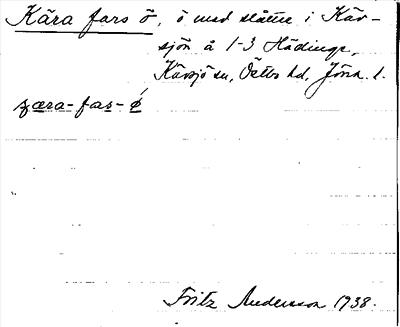 Kära fars ö, ö med slåtter i Käv-
sjön å 1-3 Hädinge,
Kävsjö sn, Östbo hd, Jönk. l.
Fritz Andersson 1938.